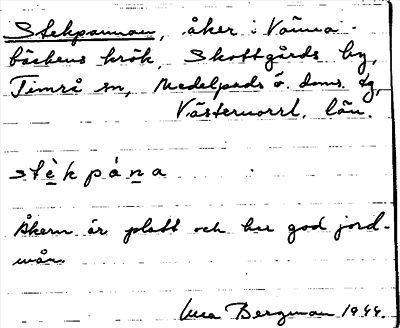 Stekpannan, åker i Vänna-
bäckens krök, Skottgårds by,
Timrå sn, Medelpads ö. doms. tg,
Västernorrl. län.
stèkpána
Åkern är platt och har god jord-
mån.
Bergman 1944.